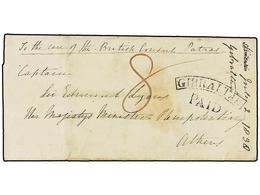 To the care of the British Consul Patras
Captain
8
Sir Edmund Lyons
GIBRALTAR
PAID
Her Majesty's Minister Plenipotentiary
Athens
Gibraltar
1838